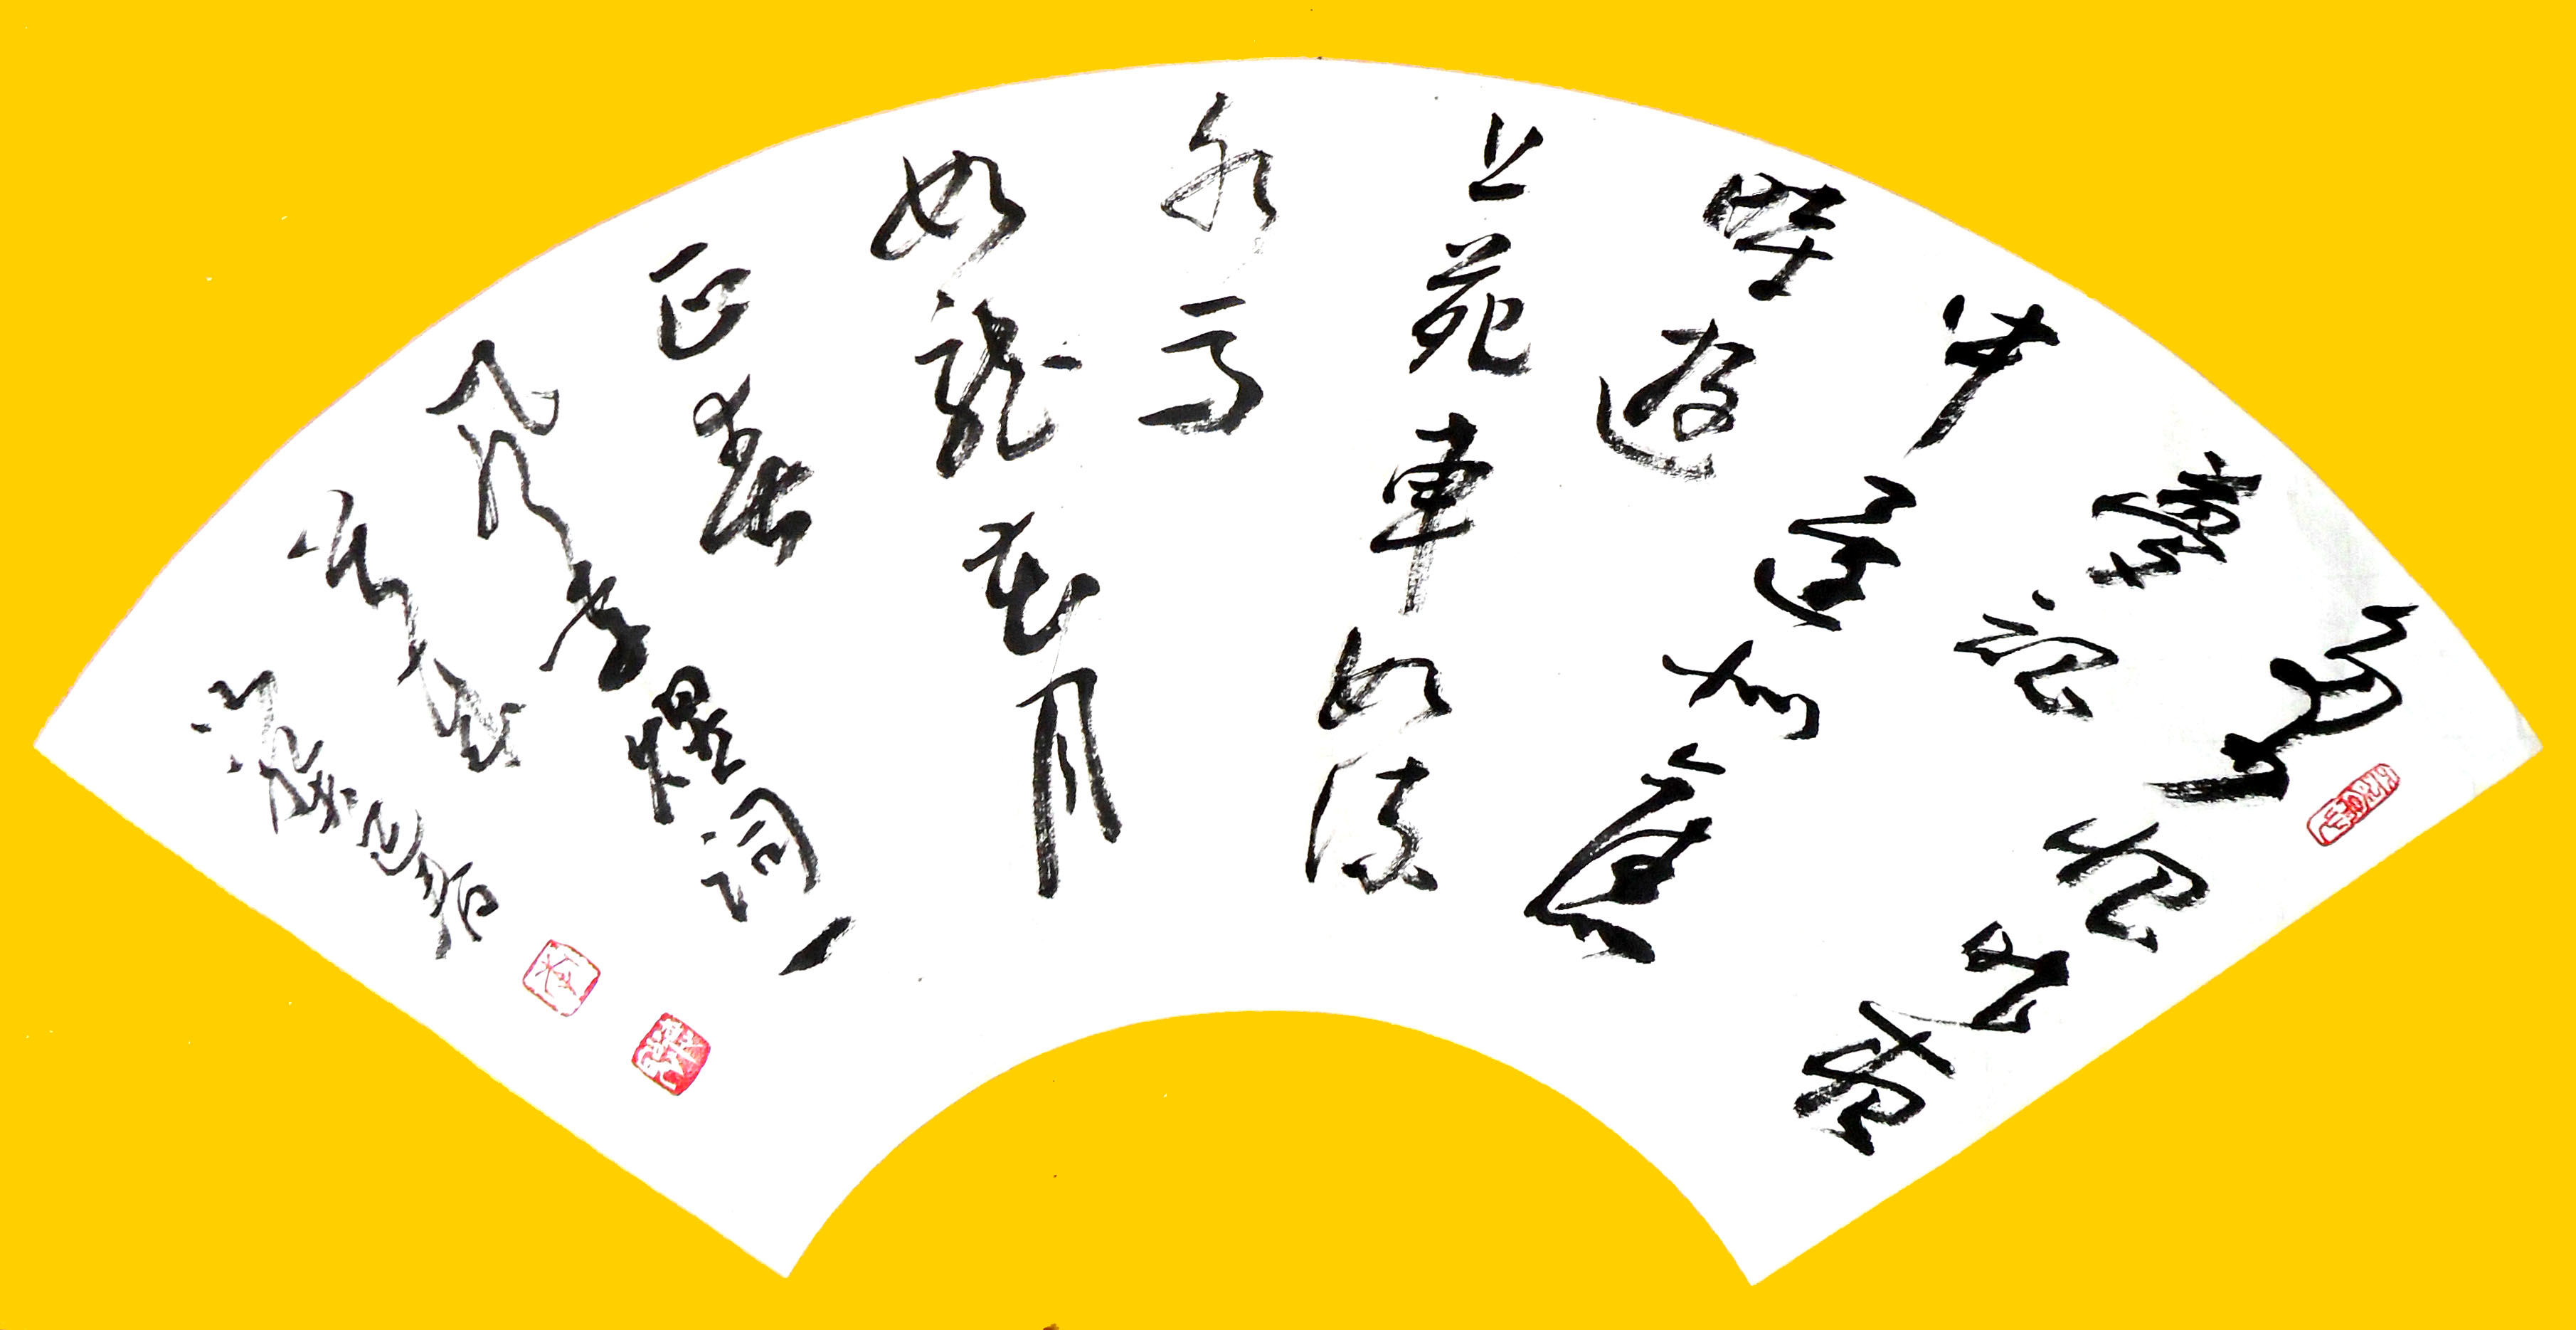 多少恨昨夜
夢魂
中還似舊
時遊
上苑車如流
水馬
如龍花月
正春
風李煜詞一
首